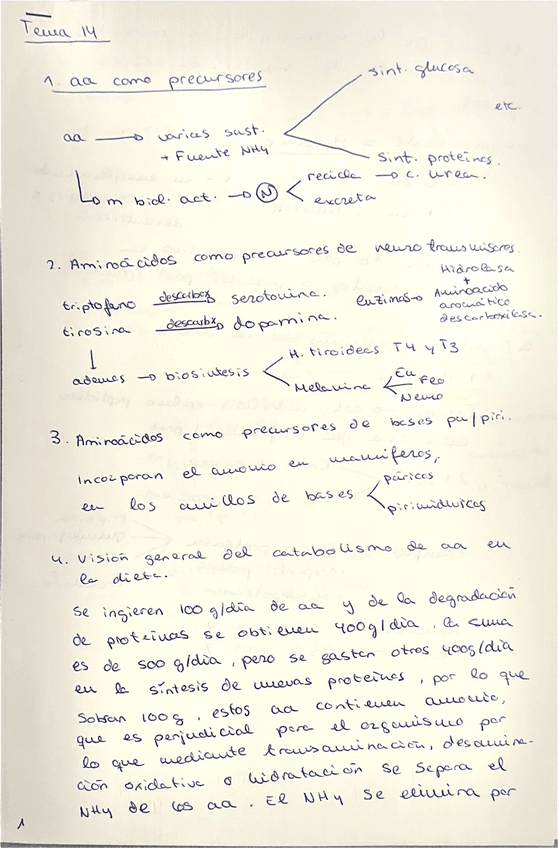 Tema 14
1. aa como precursores
sint. glucosa
etc.
aa → varias sust.
+ Fuente NH4
sint. proteínas.
m biol. act. → N
recicla → c. urea.
excreta
2. Aminoácidos como precursores de neurotransmisores.
triptofano descarbox serotonina.
tirosina descarbx dopamina.
enzimas →
Hidrolasa
+
Aminoácido
aromático
descarboxilasa.
ademas → biosíntesis
H. tiroideas T4 y T3
Melanina
Eu
Feo
Neuro
3. Aminoácidos como precursores de bases pu/piri.
Incorporan el amonio en mamíferos,
en los anillos de bases
púricas
pirimidínicas
4. Visión general del catabolismo de aa en
la dieta.
Se ingieren 100 g/día de aa y de la degradación
de proteínas se obtienen 400g/día, la suma
es de 500 g/día, pero se gastan otros 400g/día
en la síntesis de nuevas proteínas, por lo que
sobran 100g, estos aa contienen amonio,
que es perjudicial para el organismo por
lo que mediante transaminación, desamina-
ción oxidativa o hidratación se separa el
NH4 de los aa. El NH4 se elimina por
1